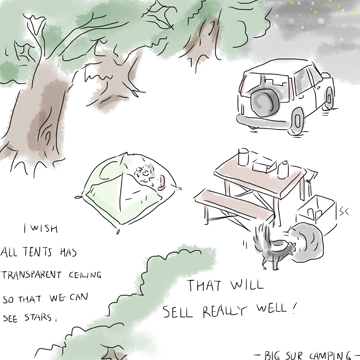 I WISH
ALL TENTS HAS
TRANSPARENT CEILING
SO THAT WE CAN
SEE STARS.
THAT WILL
SELL REALLY WELL!
SC
- BIG SUR CAMPING -